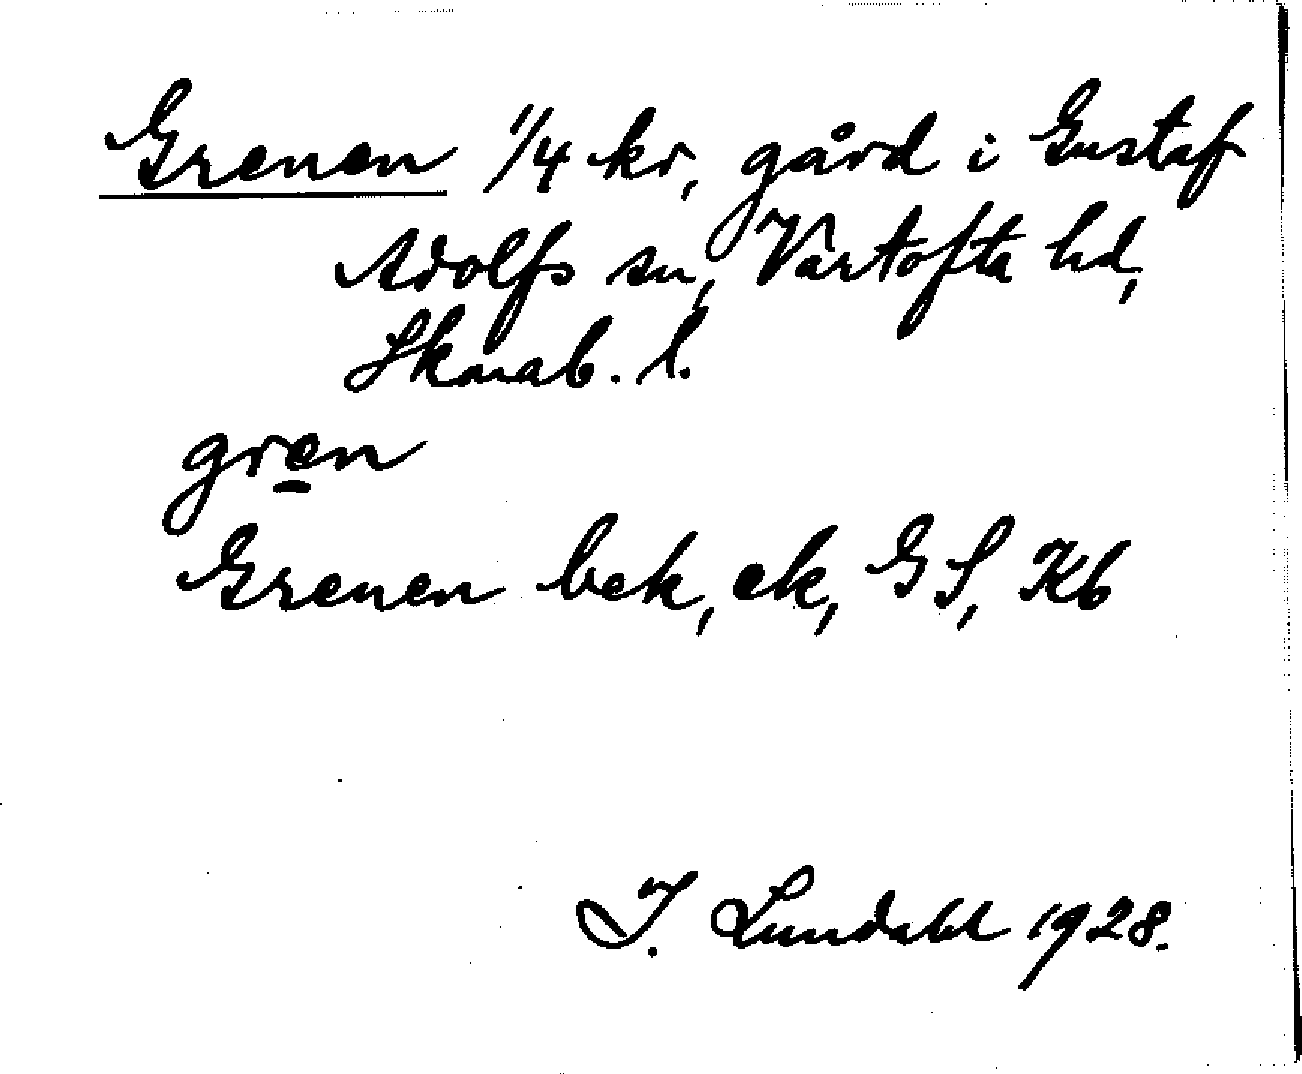 Grenen 1/4 kr, gård i Gustaf
Adolfs sn, Vartofta hd,
Skarab. l.
gren
Grenen bek, ek, GS, Kb
I. Lundahl 1928.